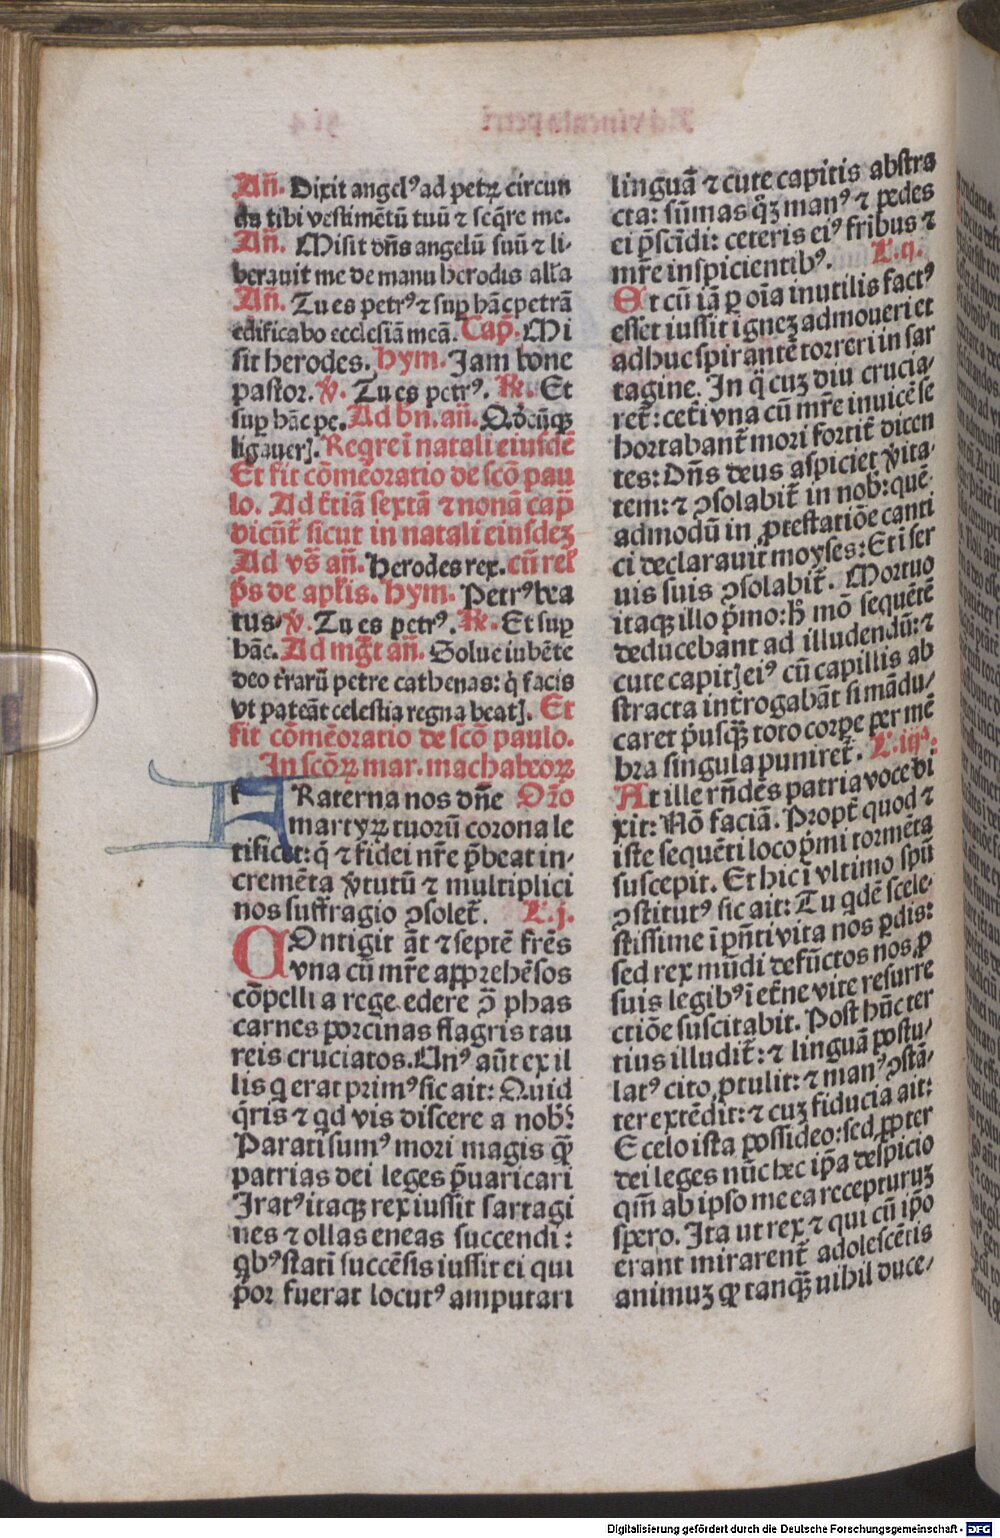 Añ. Dixit angelꝰ ad petrꝝ circun
da tibi vestimētū tuū ⁊ seq̄re me.
Añ. Misit dn̄s angelū suū ⁊ li-
beravit me de manu herodis alľa
Añ. Tu es petrꝰ ⁊ suꝑ hāc petrā
edificabo ecclesiā meā. Cap̄. Mi
sit herodes. Hym. Jam bone
pastor. v̄. Tu es petrꝰ. ℞. Et
suꝑ hāc pe. Ad bn̄. añ. Qd̄cūqꝫ
ligauerꝭ. Reqre ī natali eiusdē
Et fit cōmēoratio de scō pau
lo. Ad t̄tiā sextā ⁊ nonā cap̄
dicūt̄ sicut in natali eiusdeꝫ
Ad vs̄ añ. Herodes rex. cū rel̄
p̄s de apl̄is. Hym. Petrꝰ bea
tus v̄. Tu es petrꝰ. ℞. Et suꝑ
hāc. Ad mḡt añ. Solue iubēte
deo t̄rarū petre cathenas: q̇ facis
vt pateāt celestia regna beatꝭ. Et
fit cōmēoratio de scō paulo.
In scōꝝ mar. machabeoꝝ
FRaterna nos dn̄e Or̄o
martyꝝ tuorū corona le
tificet: q̄ ⁊ fidei nr̄e p̄beat in-
cremēta v̄tutū ⁊ multiplici
nos suffragio ꝯsolet̄. L̄.j.
COntigit āt ⁊ septē fr̄es
vna cū mr̄e apprehēsos
cōpelli a rege edere ꝯ̄ phas
carnes porcinas flagris tau
reis cruciatos. Unꝰ aūt ex il
lis q erat primꝰ sic ait: Quid
q̄ris ⁊ qd vis discere a nobꝭ?
Parati sumꝰ mori magis qꝫ̄
patrias dei leges p̄uaricari
Iratꝰ itaqꝫ rex iussit sartagi
nes ⁊ ollas eneas succendi:
qbꝰ stati succēsis iussit ei qui
p̄or fuerat locutꝰ amputari
linguā ⁊ cute capitis abstra
cta: sūmas qꝫ̄ manꝰ ⁊ pedes
ei p̄scīdi: ceteris eiꝰ fribus ⁊
mr̄e inspicientibꝰ. L̄.ij.
Et cū iā ꝑ oīa inutilis factꝰ
esset iussit igneꝫ admoueri et
adhuc spirantē torreri in sar
tagine. In q̄ cuꝫ diu crucia-
ret̄: cet̄i vna cū mr̄e inuicē se
hortabant̄ mori fortit̄ dicen
tes: Dn̄s deus aspiciet v̄ita-
tem: ⁊ ꝯsolabit̄ in nob̄: quē-
admodū in ꝓtestatiōe canti
ci declarauit moyses: Et ī ser
uis suis ꝯsolabit̄. Mortuo
itaqꝫ illo p̄mo: h̄ mō sequētē
deducebant ad illudendū: ⁊
cute capitꝭ eiꝰ cū capillis ab
stracta int̄rogabāt si mādu-
caret p̄usqꝫ̄ toto corꝑe per mē
bra singula puniret̄. L̄.iij.
At ille rn̄dēs patria voce di
xit: Nō faciā. Propt̄ quod ⁊
iste sequēti loco p̄mi tormēta
suscepit. Et hic ī vltimo spū
ꝯstitutꝰ sic ait: Tu qdē scele-
stissime ī pn̄ti vita nos ꝑdis:
sed rex mūdi defūctos nos ꝓ
suis legibꝰ ī et̄ne vite resurre
ctiōe suscitabit. Post hūc ter
tius illudit̄: ⁊ linguā postu-
latꝰ cito ꝓtulit: ⁊ manꝰ ꝯstā-
ter extēdit: ⁊ cuꝫ fiducia ait:
E celo ista possideo: sed ꝓpter
dei leges nūc hec ip̄a despicio
qm̄ ab ipso me ea recepturuꝫ
spero. Ita ut rex ⁊ qui cū ip̄o
erant mirarent̄ adolescētis
animuꝫ qꝫ tanqꝫ̄ nihil duce-
Digitalisierung gefördert durch die Deutsche Forschungsgemeinschaft - DFG